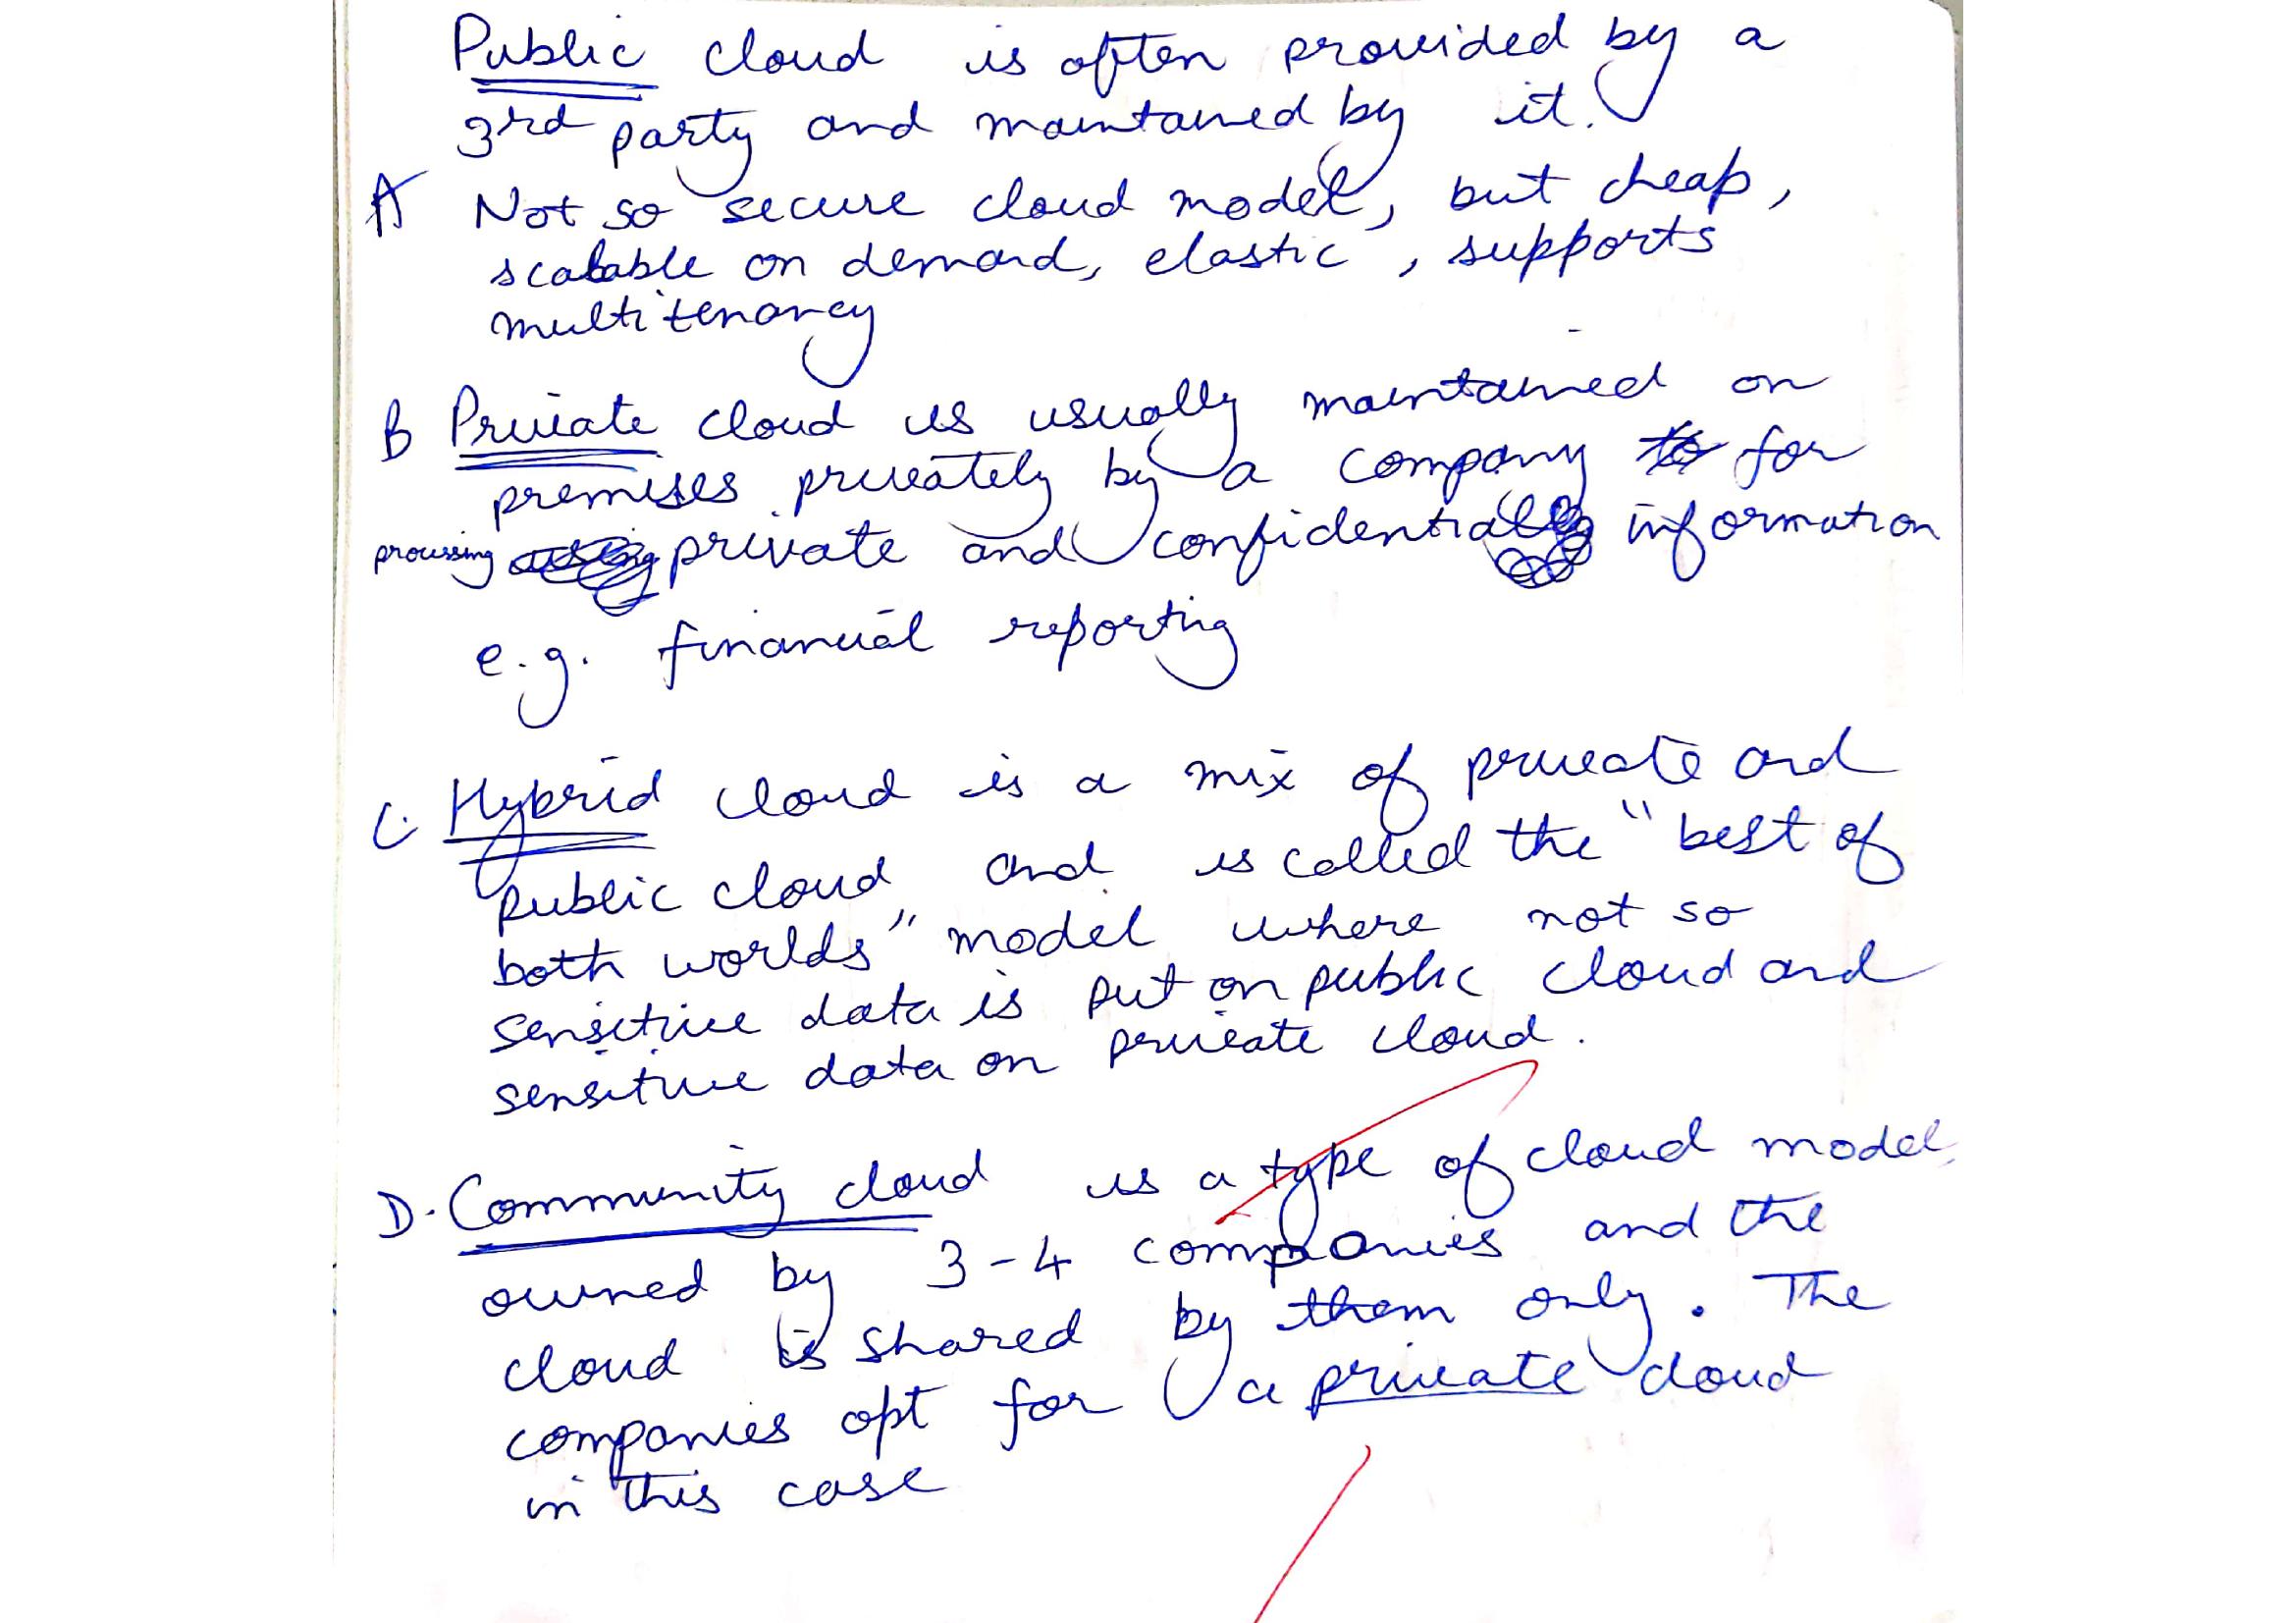 Public cloud is often provided by a
3rd party and maintained by it.
A Not so secure cloud model, but cheap,
scalable on demand, elastic, supports
multitenancy
B Private cloud is usually maintained on
premises privately by a company to for
processing private and confidential information
e.g. financial reporting
C. Hybrid cloud is a mix of private and
public cloud and is called the "best of
both worlds" model where not so
sensitive data is put on public cloud and
sensitive data on private cloud.
D. Community cloud is a type of cloud model,
owned by 3-4 companies and the
cloud is shared by them only. The
companies opt for a private cloud
in this case